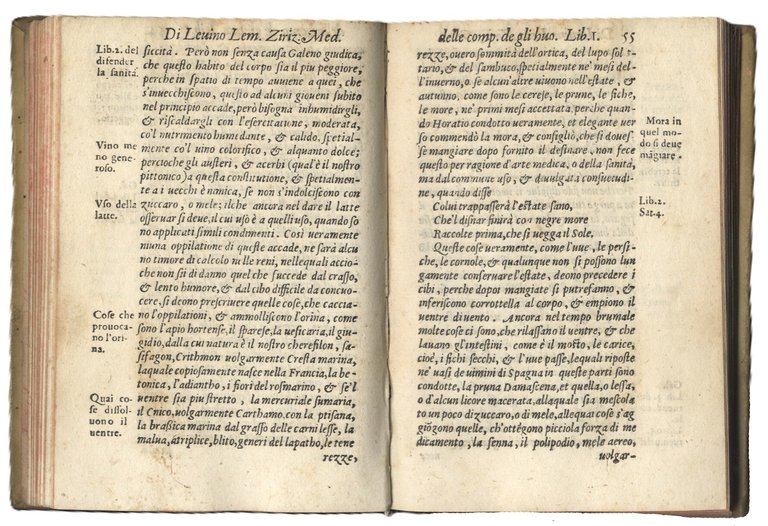 Di Levino Lem. Ziriz. Med.
Lib. 2. del
difender
la sanità.
siccità. Però non senza causa Galeno giudica,
che questo habito del corpo sia il piu peggiore,
perche in spatio di tempo auuene a quei, che
s'inuecchiscono, questo ad alcuni gioueni subito
nel principio accade, però bisogna inhumidirgli,
& riscaldargli con l'esercitatione, moderata,
co'l nutrimento humedante, & calido. spetial-
Vino me
no gene-
roso.
mente co'l uino colorifico, & alquanto dolce;
percioche gli austeri, & acerbi (qual'è il nostro
pittonico) a questa constitutione, & spetialmen-
te a i uecchi è nimica, se non s'indolciscono con
Vso della
latte.
zuccaro, o mele; ilche ancora nel dare il latte
osseruar si deue, il cui uso è a quelli uso, quando so
no applicati simili condimenti. Così ueramente
niuna oppilatione di queste accade, ne sarà alcu
no timore di calcolo nelle reni, nellequali accio-
che non sii di danno quel che succede dal crasso,
& lento humore, & dal cibo difficile da concuo-
cere, si deono prescriuere quelle cose, che caccia-
Cose che
prouoca-
no l'ori-
na.
no l'oppilationi, & ammolliscono l'orina, come
sono l'apio hortense, il sparese, la uesicaria, il giu-
gidio, dalla cui natura è il nostro cherefilon, sas-
sifagon, Crithmon uolgarmente Cresta marina,
laquale copiosamente nasce nella Francia, la be-
tonica, l'adiantho, i fiori del rosmarino, & se'l
Quai co-
se dissol-
uono il
uentre.
uentre sia piu stretto, la mercuriale sumaria,
il Cnico, uolgarmente Carthamo, con la ptisana,
la brassica marina dal grasso delle carni lesse, la
malua, atriplice, blito, generi del lapatho, le tene
rezze,
delle comp. de gli huo. Lib. I. 55
rezze, ouero sommità dell'ortica, del lupo soli-
tario, & del sambuco, spetialmente ne' mesi del-
l'inuerno, o se alcun'altre uiuono nell'estate, &
autunno, come sono le cereje, le prune, le fiche,
le more, ne' primi mesi accettata, perche quan-
do Horatio condotto ueramente, et elegante uer
so commendò la mora, & consigliò, che si douess-
se mangiare dopo fornito il desinare, non fece
questo per ragione d'arte medica, o della sanità,
ma dal commune uso, & diuulgata consuetudi-
ne, quando disse
Mora in
quel mo-
do si deue
māgiare.
Colui trapasserà l'estate sano,
Che'l disnar finirà con negre more
Raccolte prima, che si uegga il Sole.
Lib. 2.
Sat. 4.
Queste cose ueramente, come l'uue, le persi-
che, le cornole, & qualunque non si possono lun
gamente conseruare l'estate, deono precedere i
cibi, perche dopoi mangiate si putrefanno, &
inferiscono corrottella al corpo, & empiono il
uentre di uento. Ancora nel tempo brumale
molte cose ci sono, che rilassano il uentre, & che
lauano gl'intestini, come è il mosto, le carice,
cioè, i fichi secchi, & l'uue passe, lequali riposte
ne' uasi de uimini di Spagna in queste parti sono
condotte, la pruna Damascena, et quella, o lessa,
o d'alcun licore macerata, allaquale sia mescola
to un poco di zuccaro, o di mele, allequai cose s'ag
giōgono quelle, ch'ottēgono picciola forza di me
dicamento, la senna, il polipodio, mele aereo,
uolgar-